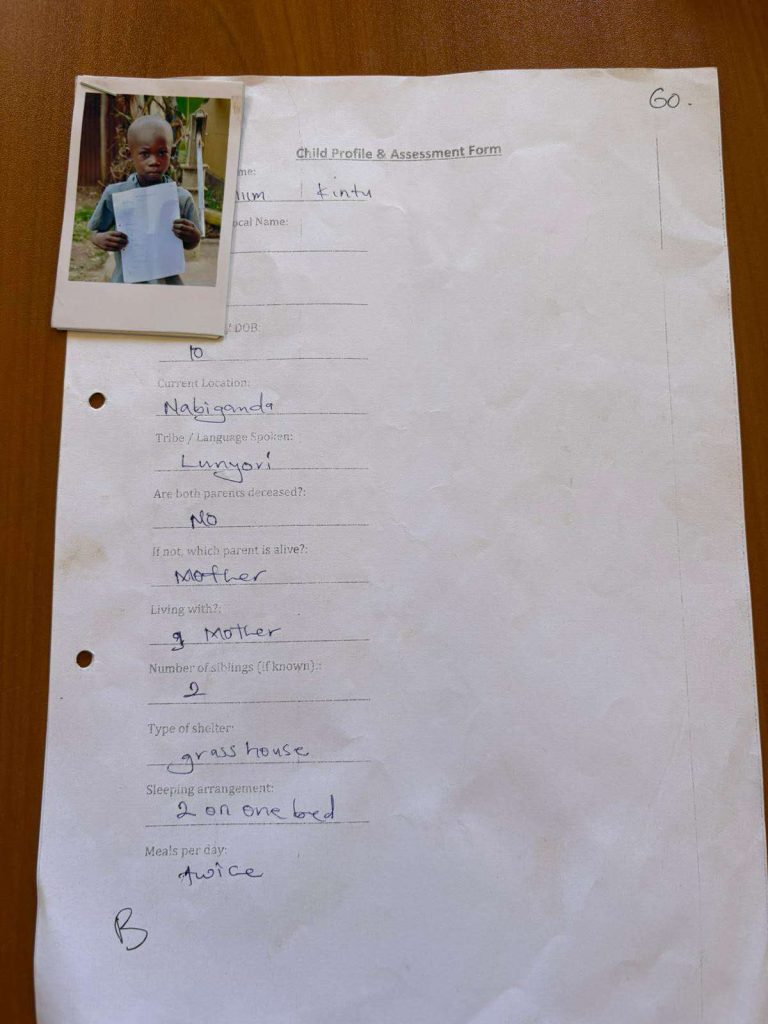 60.
Child Profile & Assessment Form
me:
Kintu
ocal Name:
/ DOB:
10
Current Location:
Nabiganda
Tribe / Language Spoken:
Lunyori
Are both parents deceased?:
No
If not, which parent is alive?:
Mother
Living with?:
g Mother
Number of siblings (if known).:
2
Type of shelter:
grass house
Sleeping arrangement:
2 on one bed
Meals per day:
twice
B